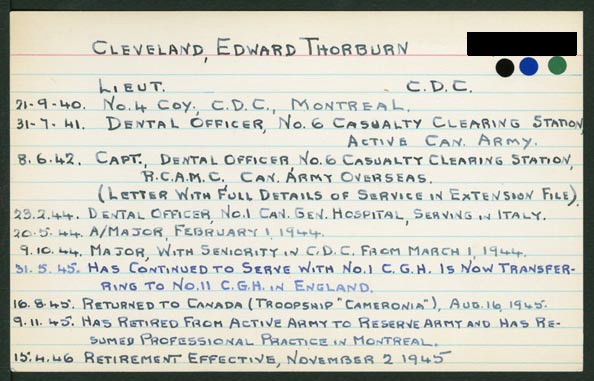 CLEVELAND, EDWARD THORBURN
LIEUT. C.D.C.
21-9-40. NO.4 COY., C.D.C., MONTREAL.
31-7-41. DENTAL OFFICER, NO.6 CASUALTY CLEARING STATION,
ACTIVE CAN. ARMY.
8.6.42. CAPT., DENTAL OFFICER NO.6 CASUALTY CLEARING STATION,
R.C.A.M.C. CAN. ARMY OVERSEAS.
(LETTER WITH FULL DETAILS OF SERVICE IN EXTENSION FILE).
23.2.44. DENTAL OFFICER, NO.1 CAN. GEN. HOSPITAL, SERVING IN ITALY.
20.5.44. A/MAJOR, FEBRUARY 1, 1944.
9.10.44. MAJOR, WITH SENIORITY IN C.D.C. FROM MARCH 1, 1944.
31.5.45. HAS CONTINUED TO SERVE WITH NO.1 C.G.H. IS NOW TRANSFER-
RING TO NO.11 C.G.H. IN ENGLAND.
16.8.45. RETURNED TO CANADA (TROOPSHIP "CAMERONIA"), AUG.16, 1945.
9.11.45. HAS RETIRED FROM ACTIVE ARMY TO RESERVE ARMY AND HAS RE-
SUMED PROFESSIONAL PRACTICE IN MONTREAL.
15.4.46 RETIREMENT EFFECTIVE, NOVEMBER 2 1945